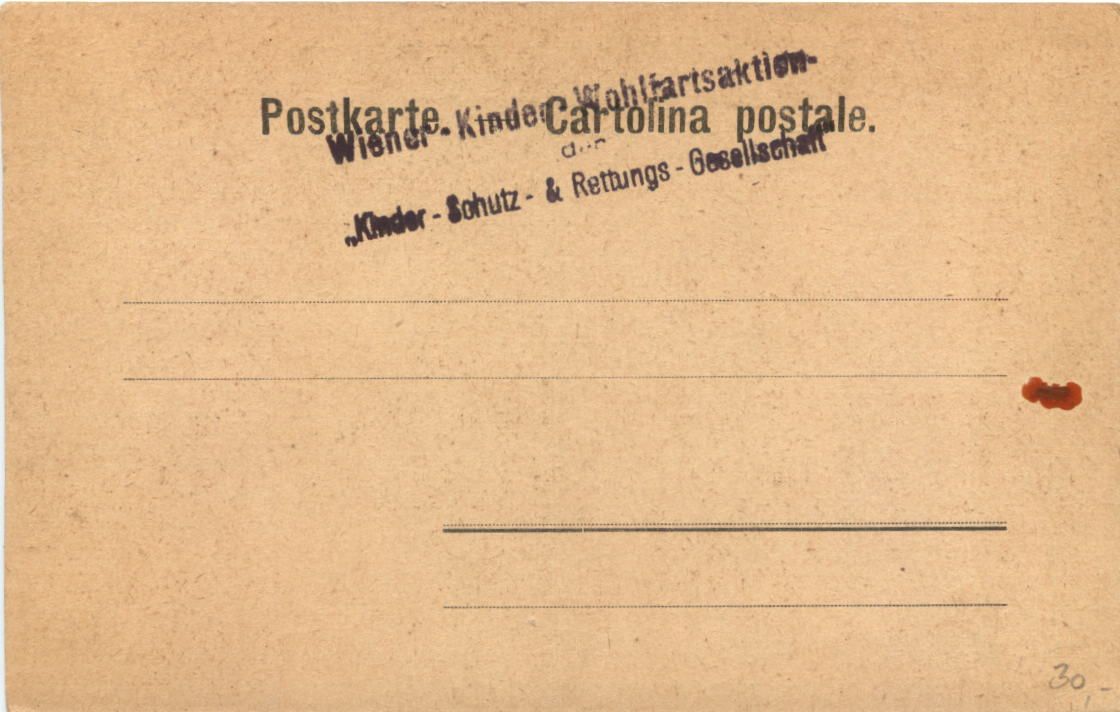 Postkarte. — Cartolina postale.
Wiener - Kinder - Wohlfartsaktion-
der
„Kinder - Schutz - & Rettungs - Gesellschaft"
30,-